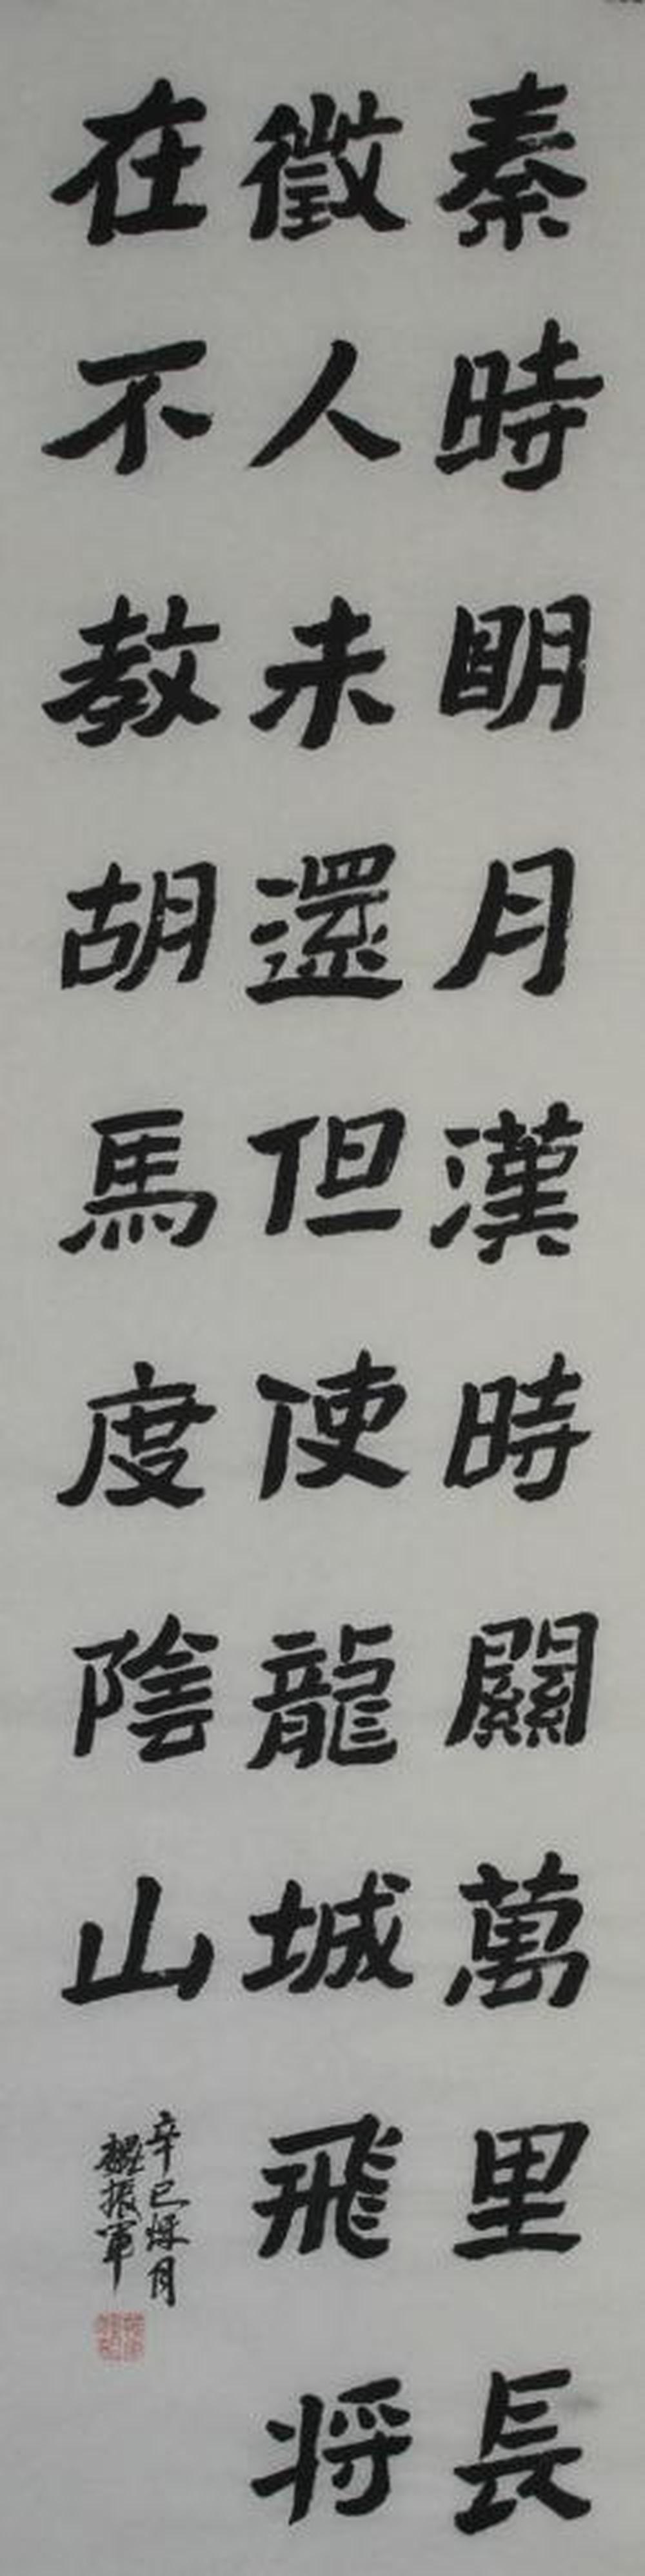 秦時明月漢時關萬里長
徵人未還但使龍城飛将
在不教胡馬度陰山
辛巳秌月
魏振軍